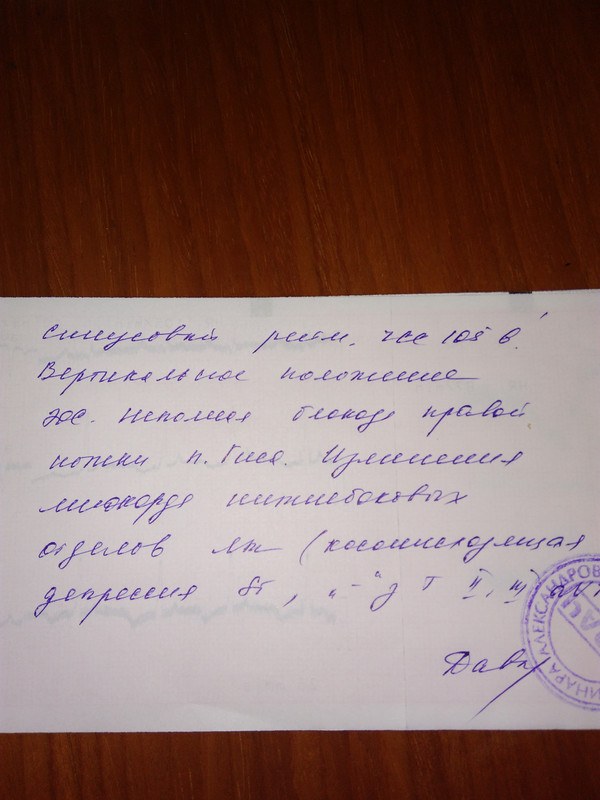 синусовый ритм. ЧСС 105 в '
Вертикальное положение
ЭОС. Неполная блокада правой
ножки п. Гиса. Изменения
миокарда нижнебоковых
отделов ЛЖ (косонисходящая
депрессия ST, „-“ з Т II, III
Давы
АЛЕКСАНДРОВ